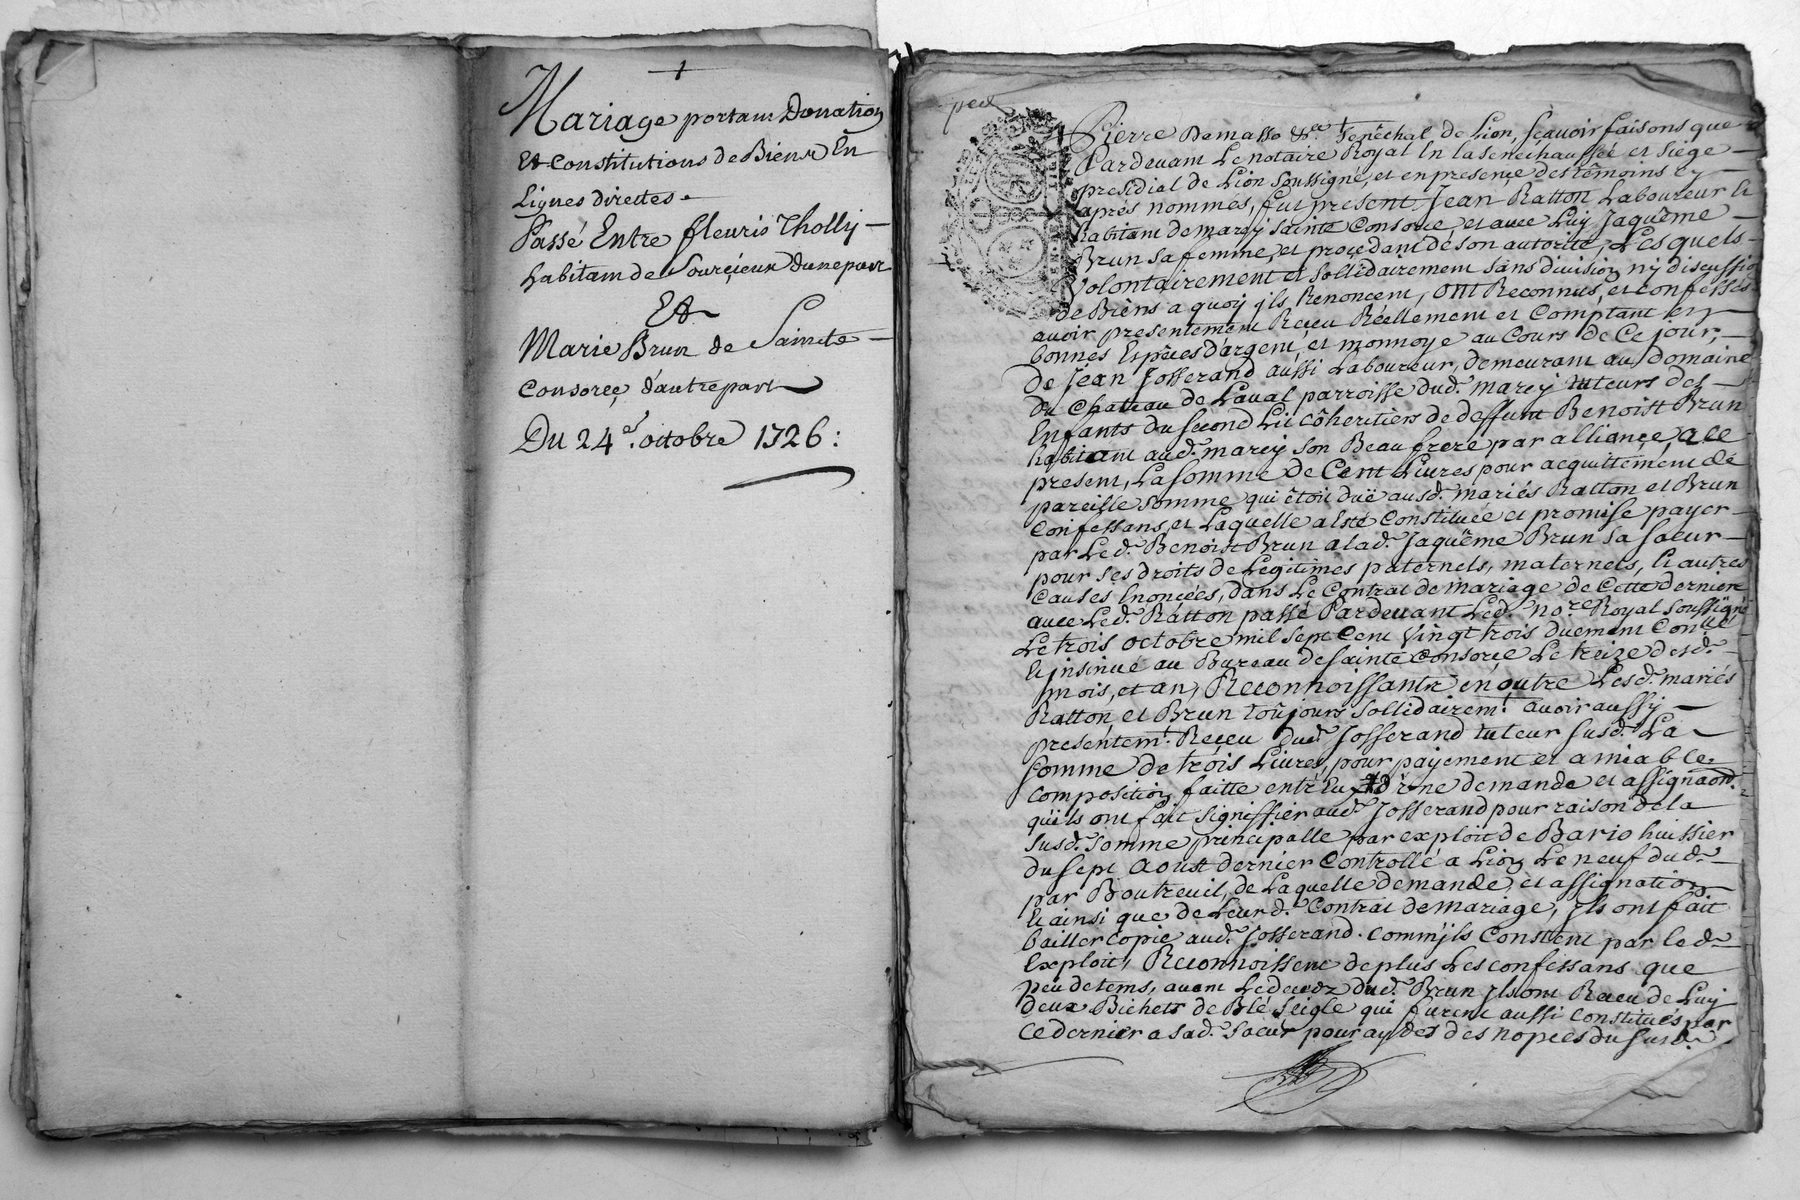 Mariage portant Donation
Et Constitutions de Biens En
Lignes directes.
Passé Entre fleuris Tholly
habitant de Sourçieux dune part
Et
Marie Brun de Saincte
Consorçe d'autre part
Du 24e. octobre 1726:
Pierre Demasso &ca Senéchal de Lion, sçavoir faisons que
Pardevant Le notaire Royal En la senéchaussée et siége
presidial de Lion soussigné, et en presençe des témoins cy
aprés nommés, fut present Jean Ratton Laboureur &
habitant de marcy Sainte Consorçe, et avec Luy Jaquême
Brun sa femme, et proçedant de son autorité, Lesquels
volontairement et sollidairement sans division ny discussion
de Biens a quoy jls Renoncent, Ont Reconnus, et confessés
avoir presentement Reçeu Réellement et Comptant en
bonnes Espêces d'argent, et monnoye au Cours de Ce jour,
de Jean Josserand aussi Laboureur, demeurant au domaine
du Chateau de Laval parroisse dud. marcy tuteurs des
Enfants du second Lit côheritiers de deffunt Benoist Brun
habitant aud. marcy son Beau frere par alliançe, a ce
present, La somme de Cent Livres pour acquittement de
pareille somme qui êtoit duë ausd. mariés Ratton et Brun
Confessans, et Laquelle a esté Constituée et promise payer
par Led. Benoist Brun a lad. Jaquême Brun sa soeur
pour ses droits de Legitimes paternels, maternels, & autres
Causes Enonçées, dans Le Contrat de mariage de Cette derniere
avec Led. Ratton passé Pardevant Led. nore Royal soussigné
Le trois octobre mil sept Cent Vingt trois duement Conllé
& jnsinué au Bureau de Sainte Consorçe Le treize desd.
mois, et an, Reconnoissants en outre Lesd. mariés
Ratton et Brun toûjours sollidairemt. avoir aussy
présentemt. Reçeu dud. Josserand tuteur susd. La
somme de trois Livres, pour payement et amiable
composition faitte entr'Eux d'une demande et assignaon.
qu'ils ont fait signiffier aud. Josserand pour raison de la
susd. somme principalle par exploit de Bario huissier
du sept Aoust dernier Controllé a Lion Le neuf dud.
par Boutreuil, de Laquelle demande, et assignation
& ainsi que de Leurd. Contrat de mariage, jls ont fait
bailler copie aud. Josserand. comm'jls Constent par led.
Exploit, Reconnoissent de plus Les confessans que
peu de tems, avant Le deçedz dud. Brun jls ont Reçeu de Luy
deux Bichets de Blé seigle qui furent aussi Constitués par
Ce dernier a sad. soeur pour aydes des nopces du susd.